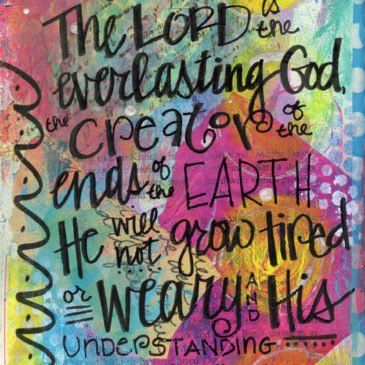 The LORD is the
everlasting God,
the Creator of the
ends of the EARTH
He will not grow tired
or Weary AND His
UNDERSTANDING